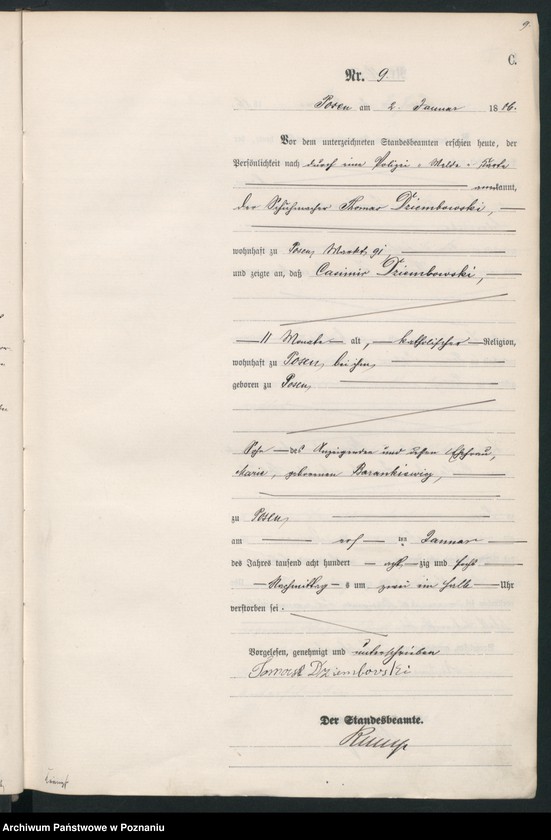 9.
C.
Nr. 9.
Posen am 2. Januar 1886.
Vor dem unterzeichneten Standesbeamten erschien heute, der
Persönlichkeit nach durch eine Polizei-Melde-Karte
kannt,
der Schuhmacher Thomas Dziembowski,
wohnhaft zu Posen, Markt 91,
und zeigte an, daß Casimir Dziembowski,
11 Monate alt, katholischer Religion,
wohnhaft zu Posen, bei ihm,
geboren zu Posen,
Sohn des Anzeigenden und dessen Ehefrau,
Marie, geborenen
zu Posen,
am ten Januar
des Jahres tausend acht hundert achtzig und sechs
Nachmittags um zwei ein halb Uhr
verstorben sei.
Vorgelesen, genehmigt und unterschrieben
Dziembovski
Der Standesbeamte.
Archiwum Państwowe w Poznaniu